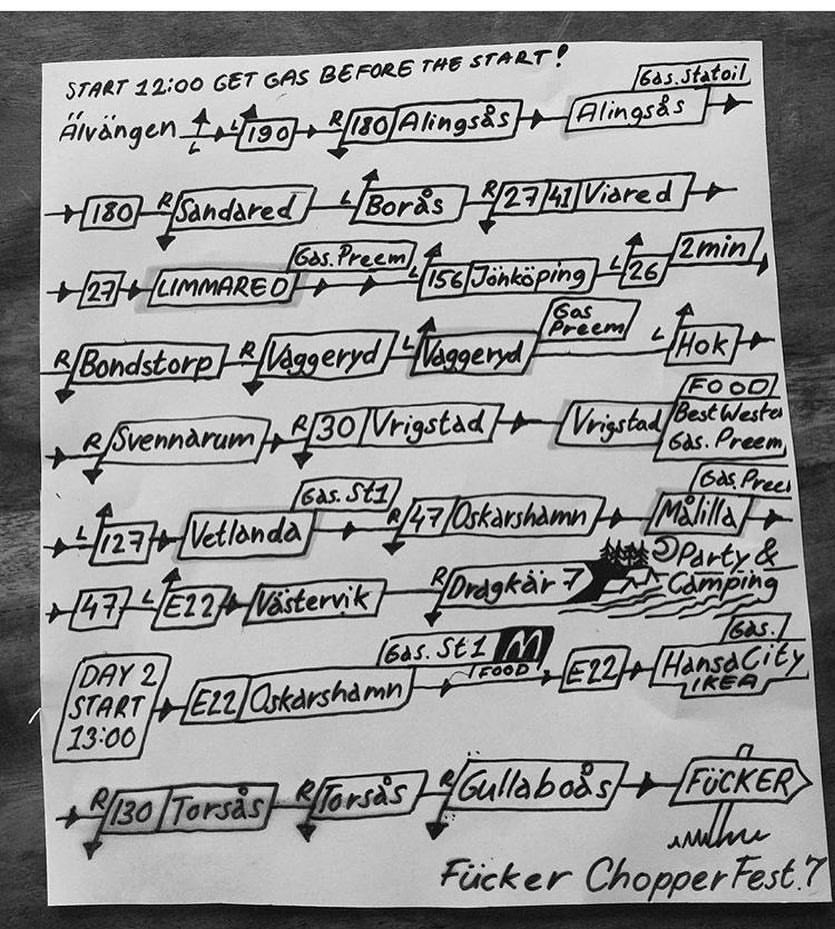 START 12:00 GET GAS BEFORE THE START!
Gas. Statoil
Älvängen L L 190 R 180 Alingsås Alingsås
180 R Sandared L Borås R 27 41 Viared
Gas. Preem
27 LIMMARED L 156 Jönköping L 26 2min
Gas Preem
R Bondstorp R Vaggeryd L Vaggeryd L Hok
FOOD
R Svennarum R 30 Vrigstad Vrigstad Best Weste
Gas. Preem
Gas. St1 Gas. Pree
L 127 Vetlanda R 47 Oskarshamn Målilla
Party &
47 L E22 Västervik R Dragkär 7 Camping
Gas. St1 M FOOD Gas.
DAY 2 START 13:00 E22 Oskarshamn E22 HansaCity
IKEA
R 130 Torsås R Torsås R Gullaboås FÜCKER
Fücker ChopperFest. 7